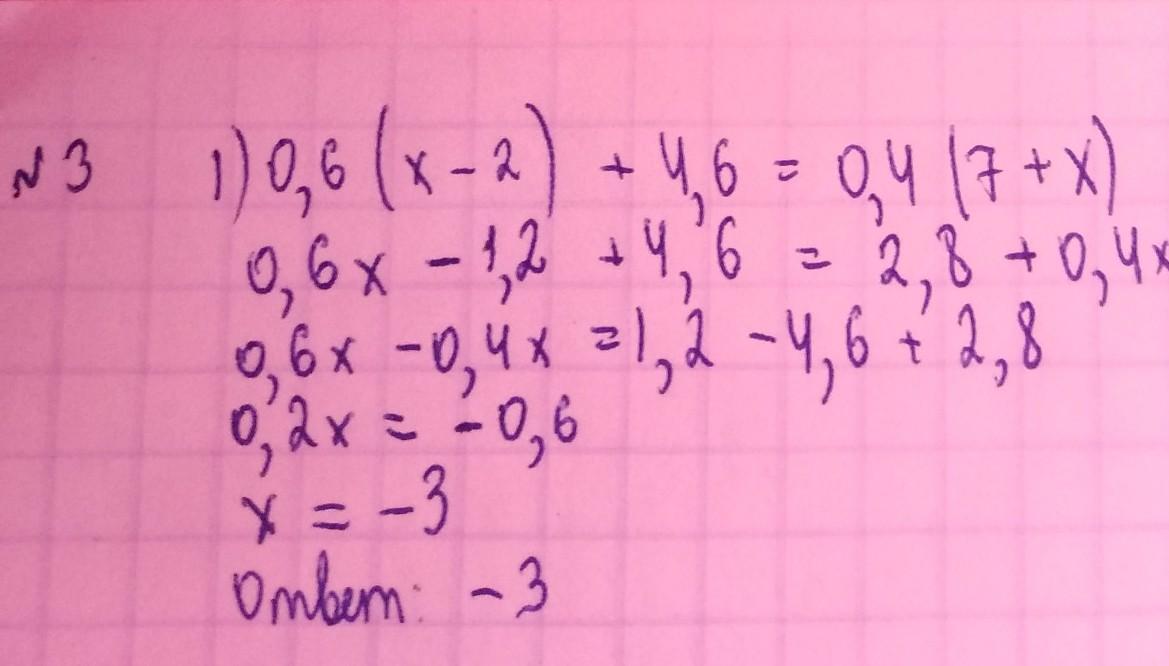 №3 1) 0,6 (x - 2) + 4,6 = 0,4 (7 + x)
0,6x - 1,2 + 4,6 = 2,8 + 0,4x
0,6x - 0,4x = 1,2 - 4,6 + 2,8
0,2x = -0,6
x = -3
Ответ: -3